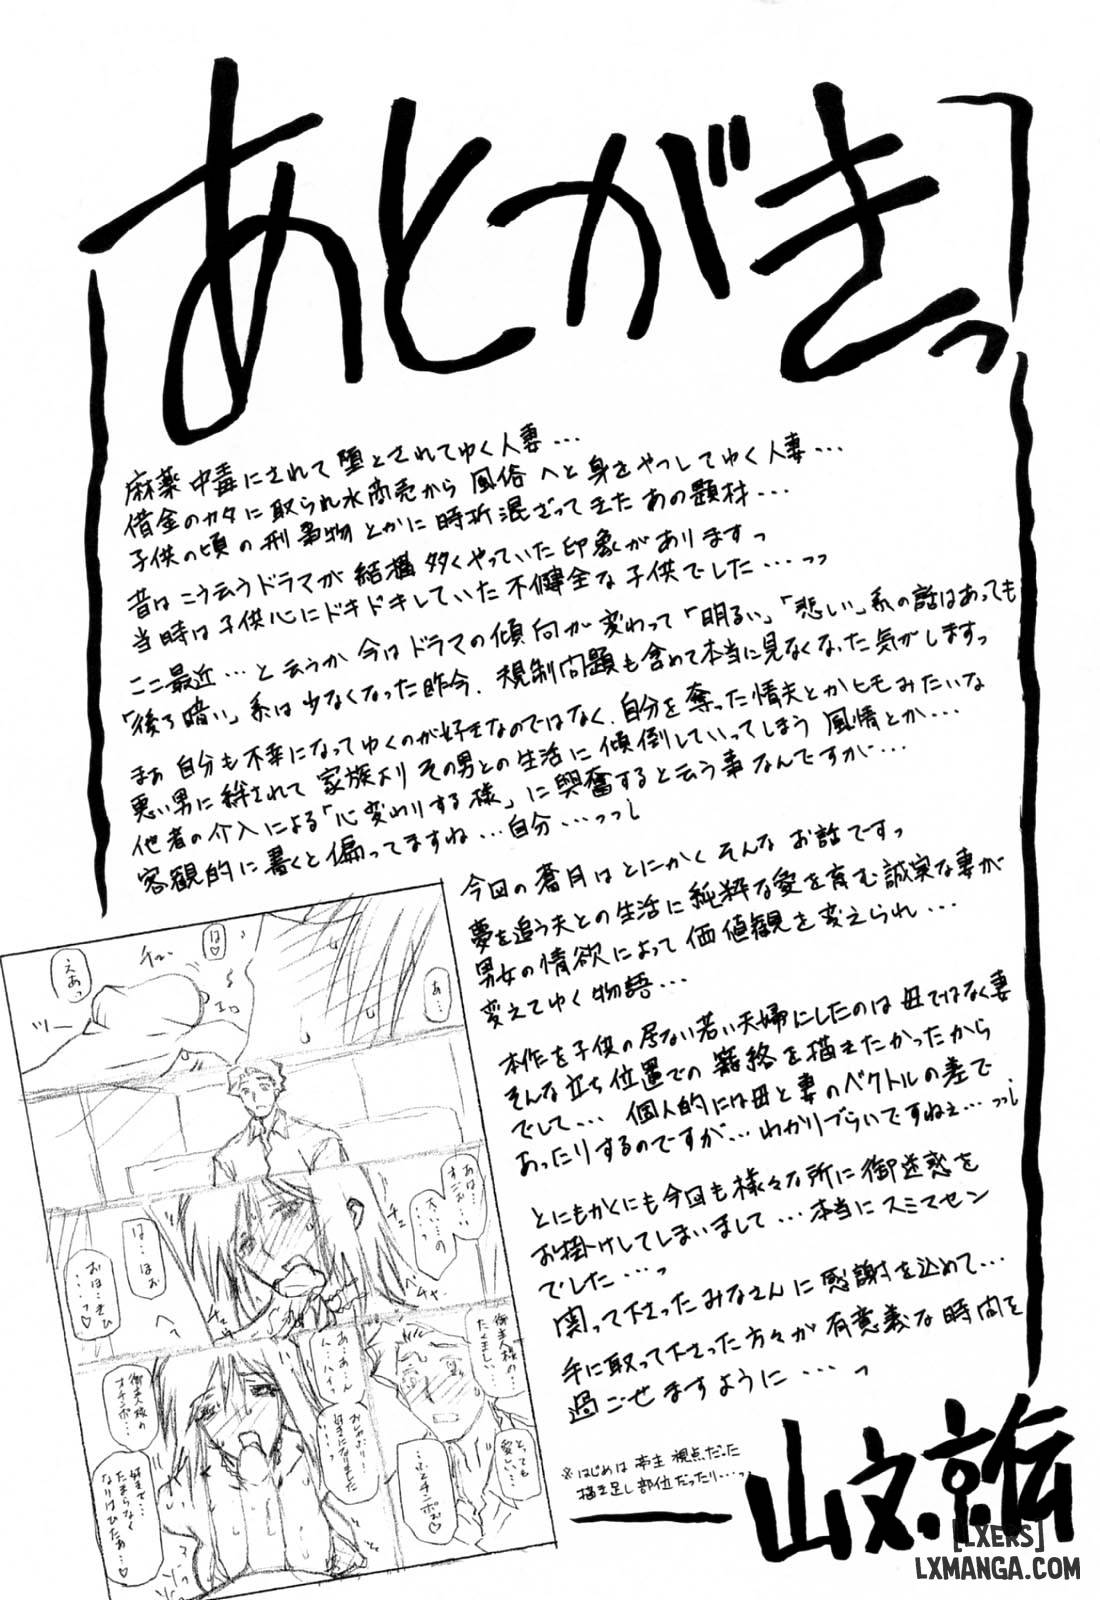 あとがきっ
麻薬中毒にされて堕とされてゆく人妻…
借金のカタに取られ水商売から風俗へと身をやつしてゆく人妻…
子供の頃の刑事物とかに時折混ざってきたあの題材…
昔はこう云うドラマが結構多くやっていた印象がありますっ
当時は子供心にドキドキしていた不健全な子供でした…っっ
ここ最近…と云うか今はドラマの傾向が変わって「明るい」「悲しい」系の話はあっても
「後ろ暗い」系は少なくなった昨今、規制問題も含めて本当に見なくなった気がしますっ
まぁ自分も不幸になってゆくのが好きなのではなく、自分を奪った情夫とかヒモみたいな
悪い男に絆されて家族よりその男との生活に傾倒していってしまう風情とか…
他者の介入による「心変わりする様」に興奮すると云う事なんですが…
客観的に書くと偏ってますね…自分…っっ
今回の蒼月はとにかくそんなお話ですっ
夢を追う夫との生活に純粋な愛を育む誠実な妻が
男女の情欲によって価値観を変えられ…
変えてゆく物語…
本作を子供の居ない若い夫婦にしたのは母ではなく妻
そんな立ち位置での籠絡を描きたかったから
でして… 個人的には母と妻のベクトルの差で
あったりするのですが…わかりづらいですねぇ…っっ
とにもかくにも今回も様々な所に御迷惑を
お掛けしてしまいまして…本当にスミマセン
でした…っ
関って下さったみなさんに感謝を込めて…
手に取って下さった方々が有意義な時間を
過ごせますように…っ
※はじめは亭主視点だった
描き足し部位だったり…っ
山文京伝
えあっ
チュ
は♡
あ…
ツー
あは…
オニお
大い…の
は…ほお
おは…きひ
…っ♡
チュ
へぇ
御主人様の
たくましい…
あ…あ…ん
ハ…ハイ…
おしゃぶり…
好きになりました
とっても
愛しい…
…っとチンポぉ♡
御主人様の
オチンポ…
好きで…
たまらなく
なりはひたぁ…♡
[LXERS]
LXMANGA.COM